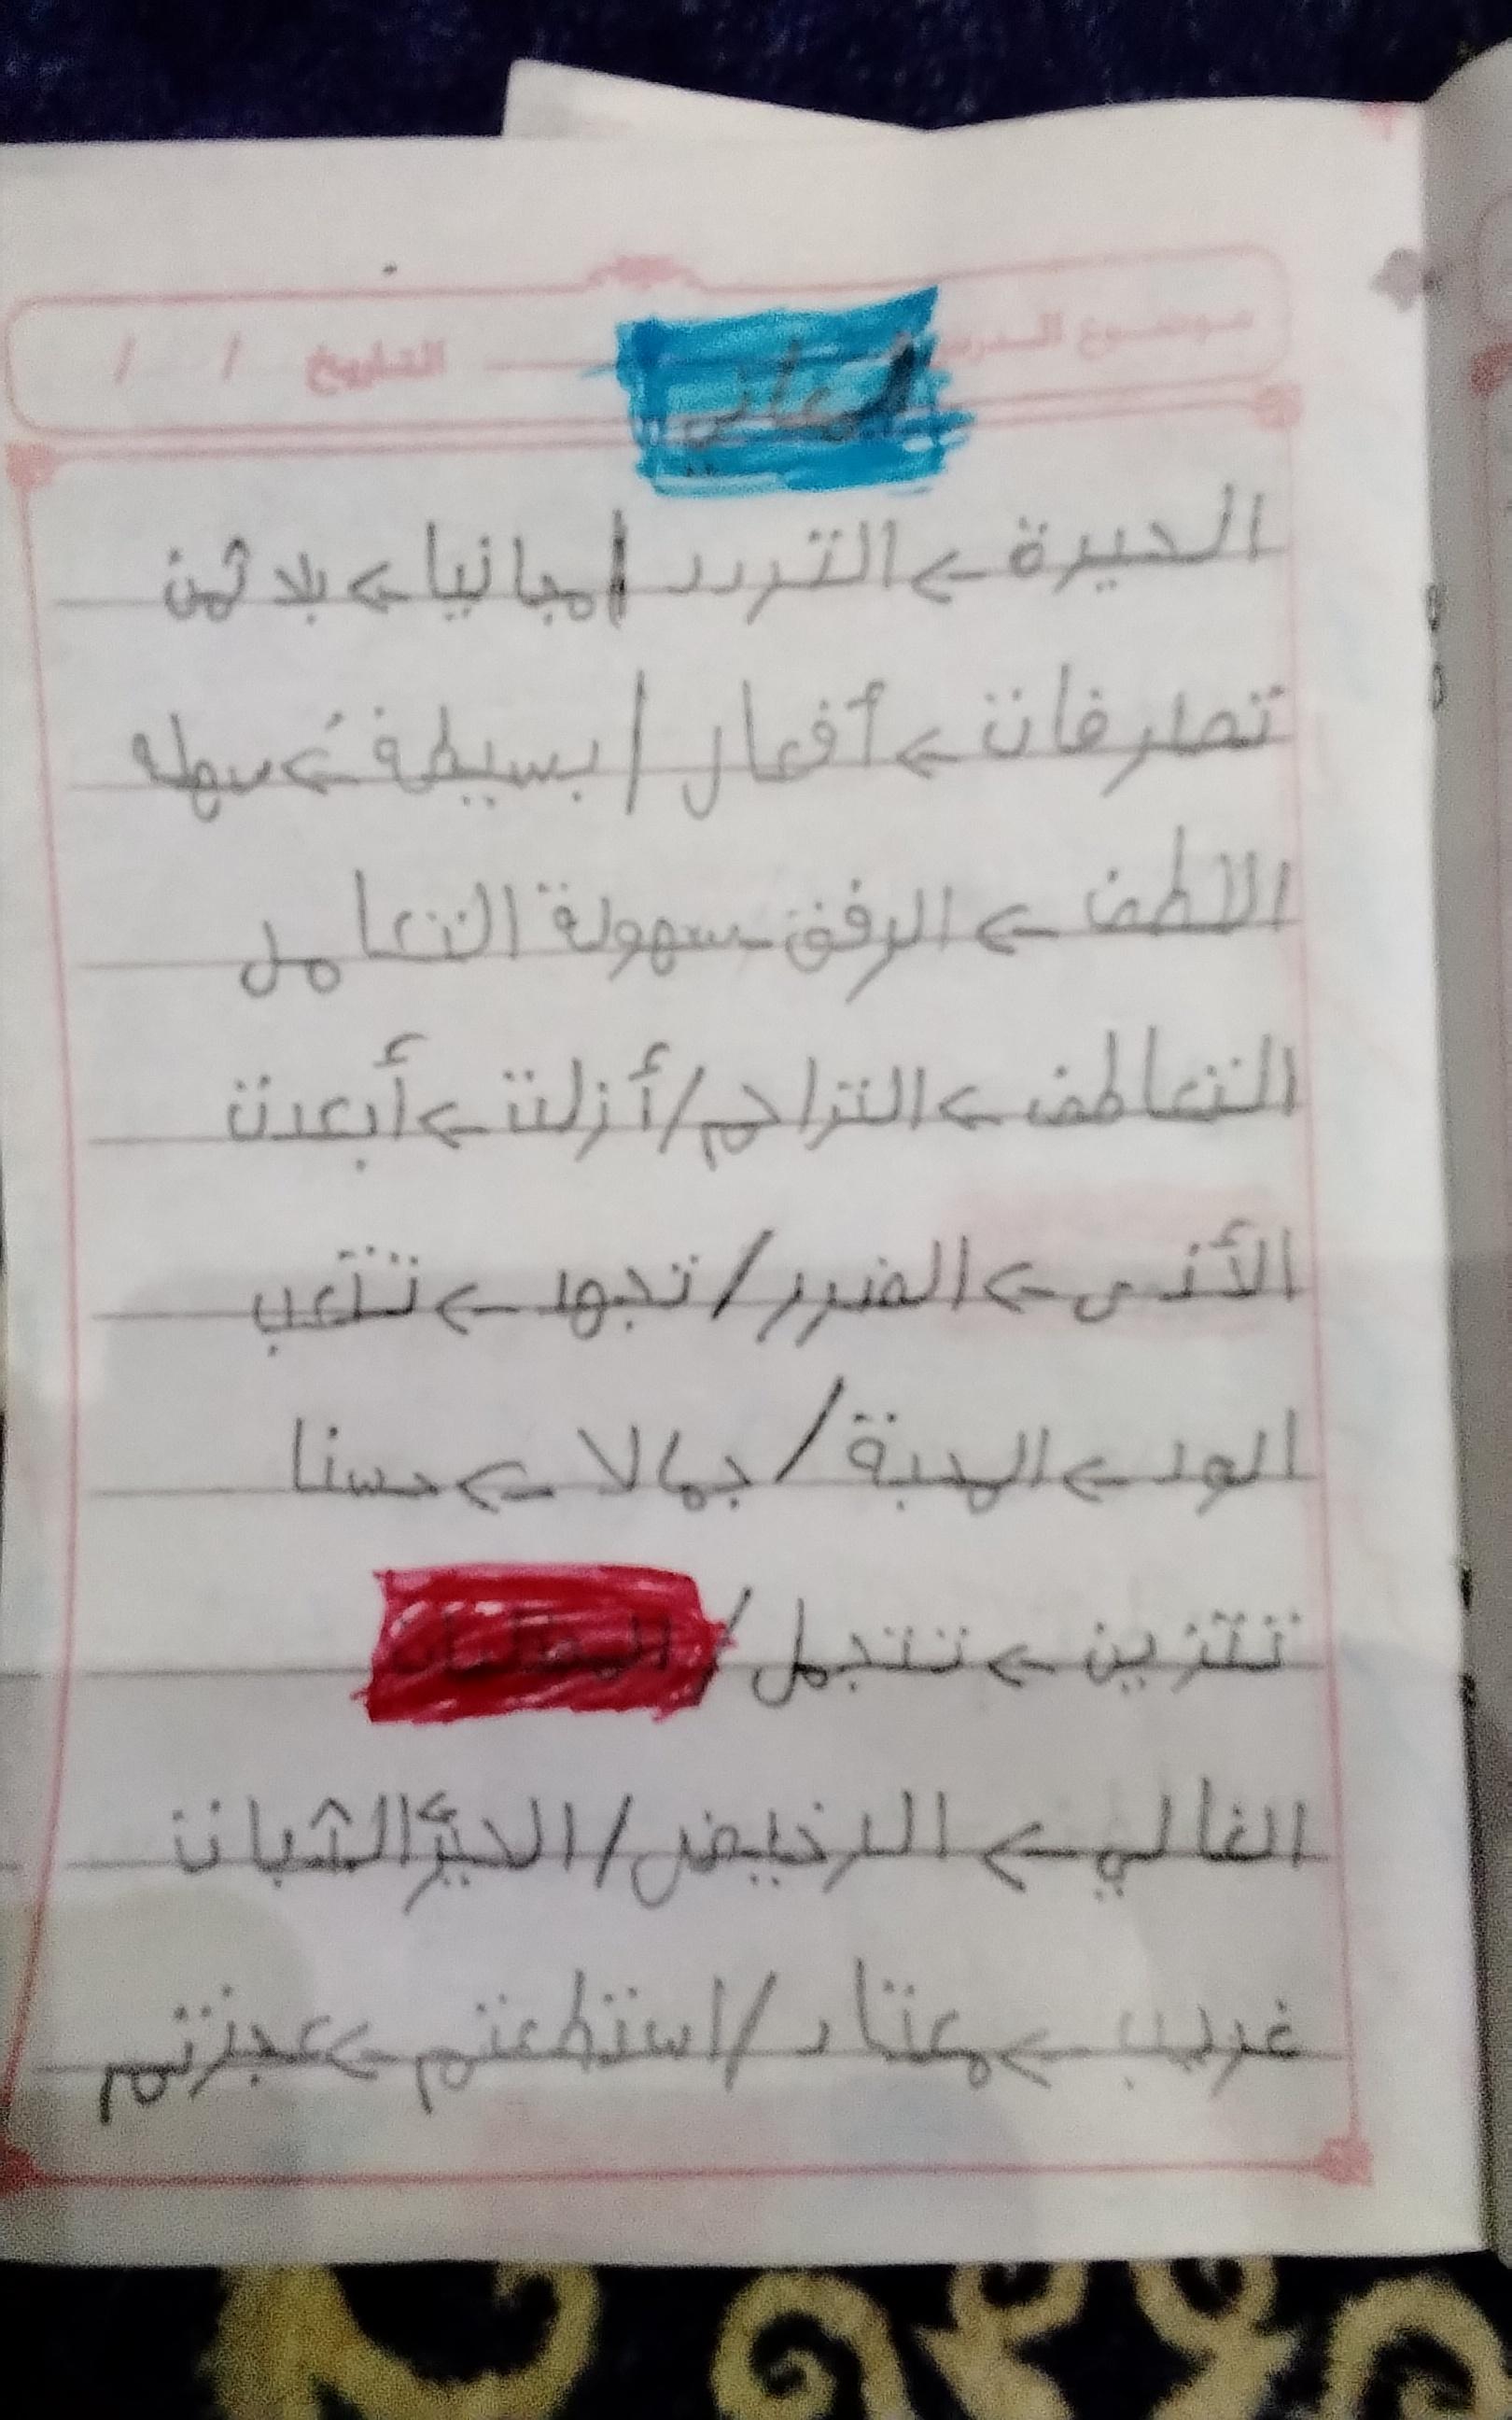 موضوع الدرس التاريخ / /
المعاني
الحيرة ← التردد / مجانيا ← بلا ثمن
تصارفات ← أفعال / بسيطة ← سهله
اللطف ← الرفق - سهولة التعامل
التعاطف ← التراحم / أزلت ← أبعدت
الأذى ← الضرر / تجهد ← تتعب
الود ← المحبة / جمالا ← حسنا
تتزين ← تتجمل /
الغالي ← الرخيض / الحيرة الثبات
غريب ← معتاد / استطعتم ← عجزتم